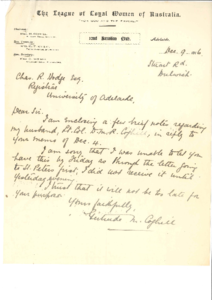 The League of Loyal Women of Australia.
Dec. 9. 16
Stuart Rd.
Dulwich
Chas. R. Hodge Esq.
Registrar
University of Adelaide.
Dear Sir,
I am enclosing a few brief notes regarding
my husband, Lt. Col. in reply to
your memo of Dec. 4.
I am sorry that I was unable to let you
have this by Friday as through the letter going
to St. Peters first, I did not receive it until
yesterday
I trust that it will not be too late for
your purpose.
Yours faithfully.
Gertrude M. Coghill